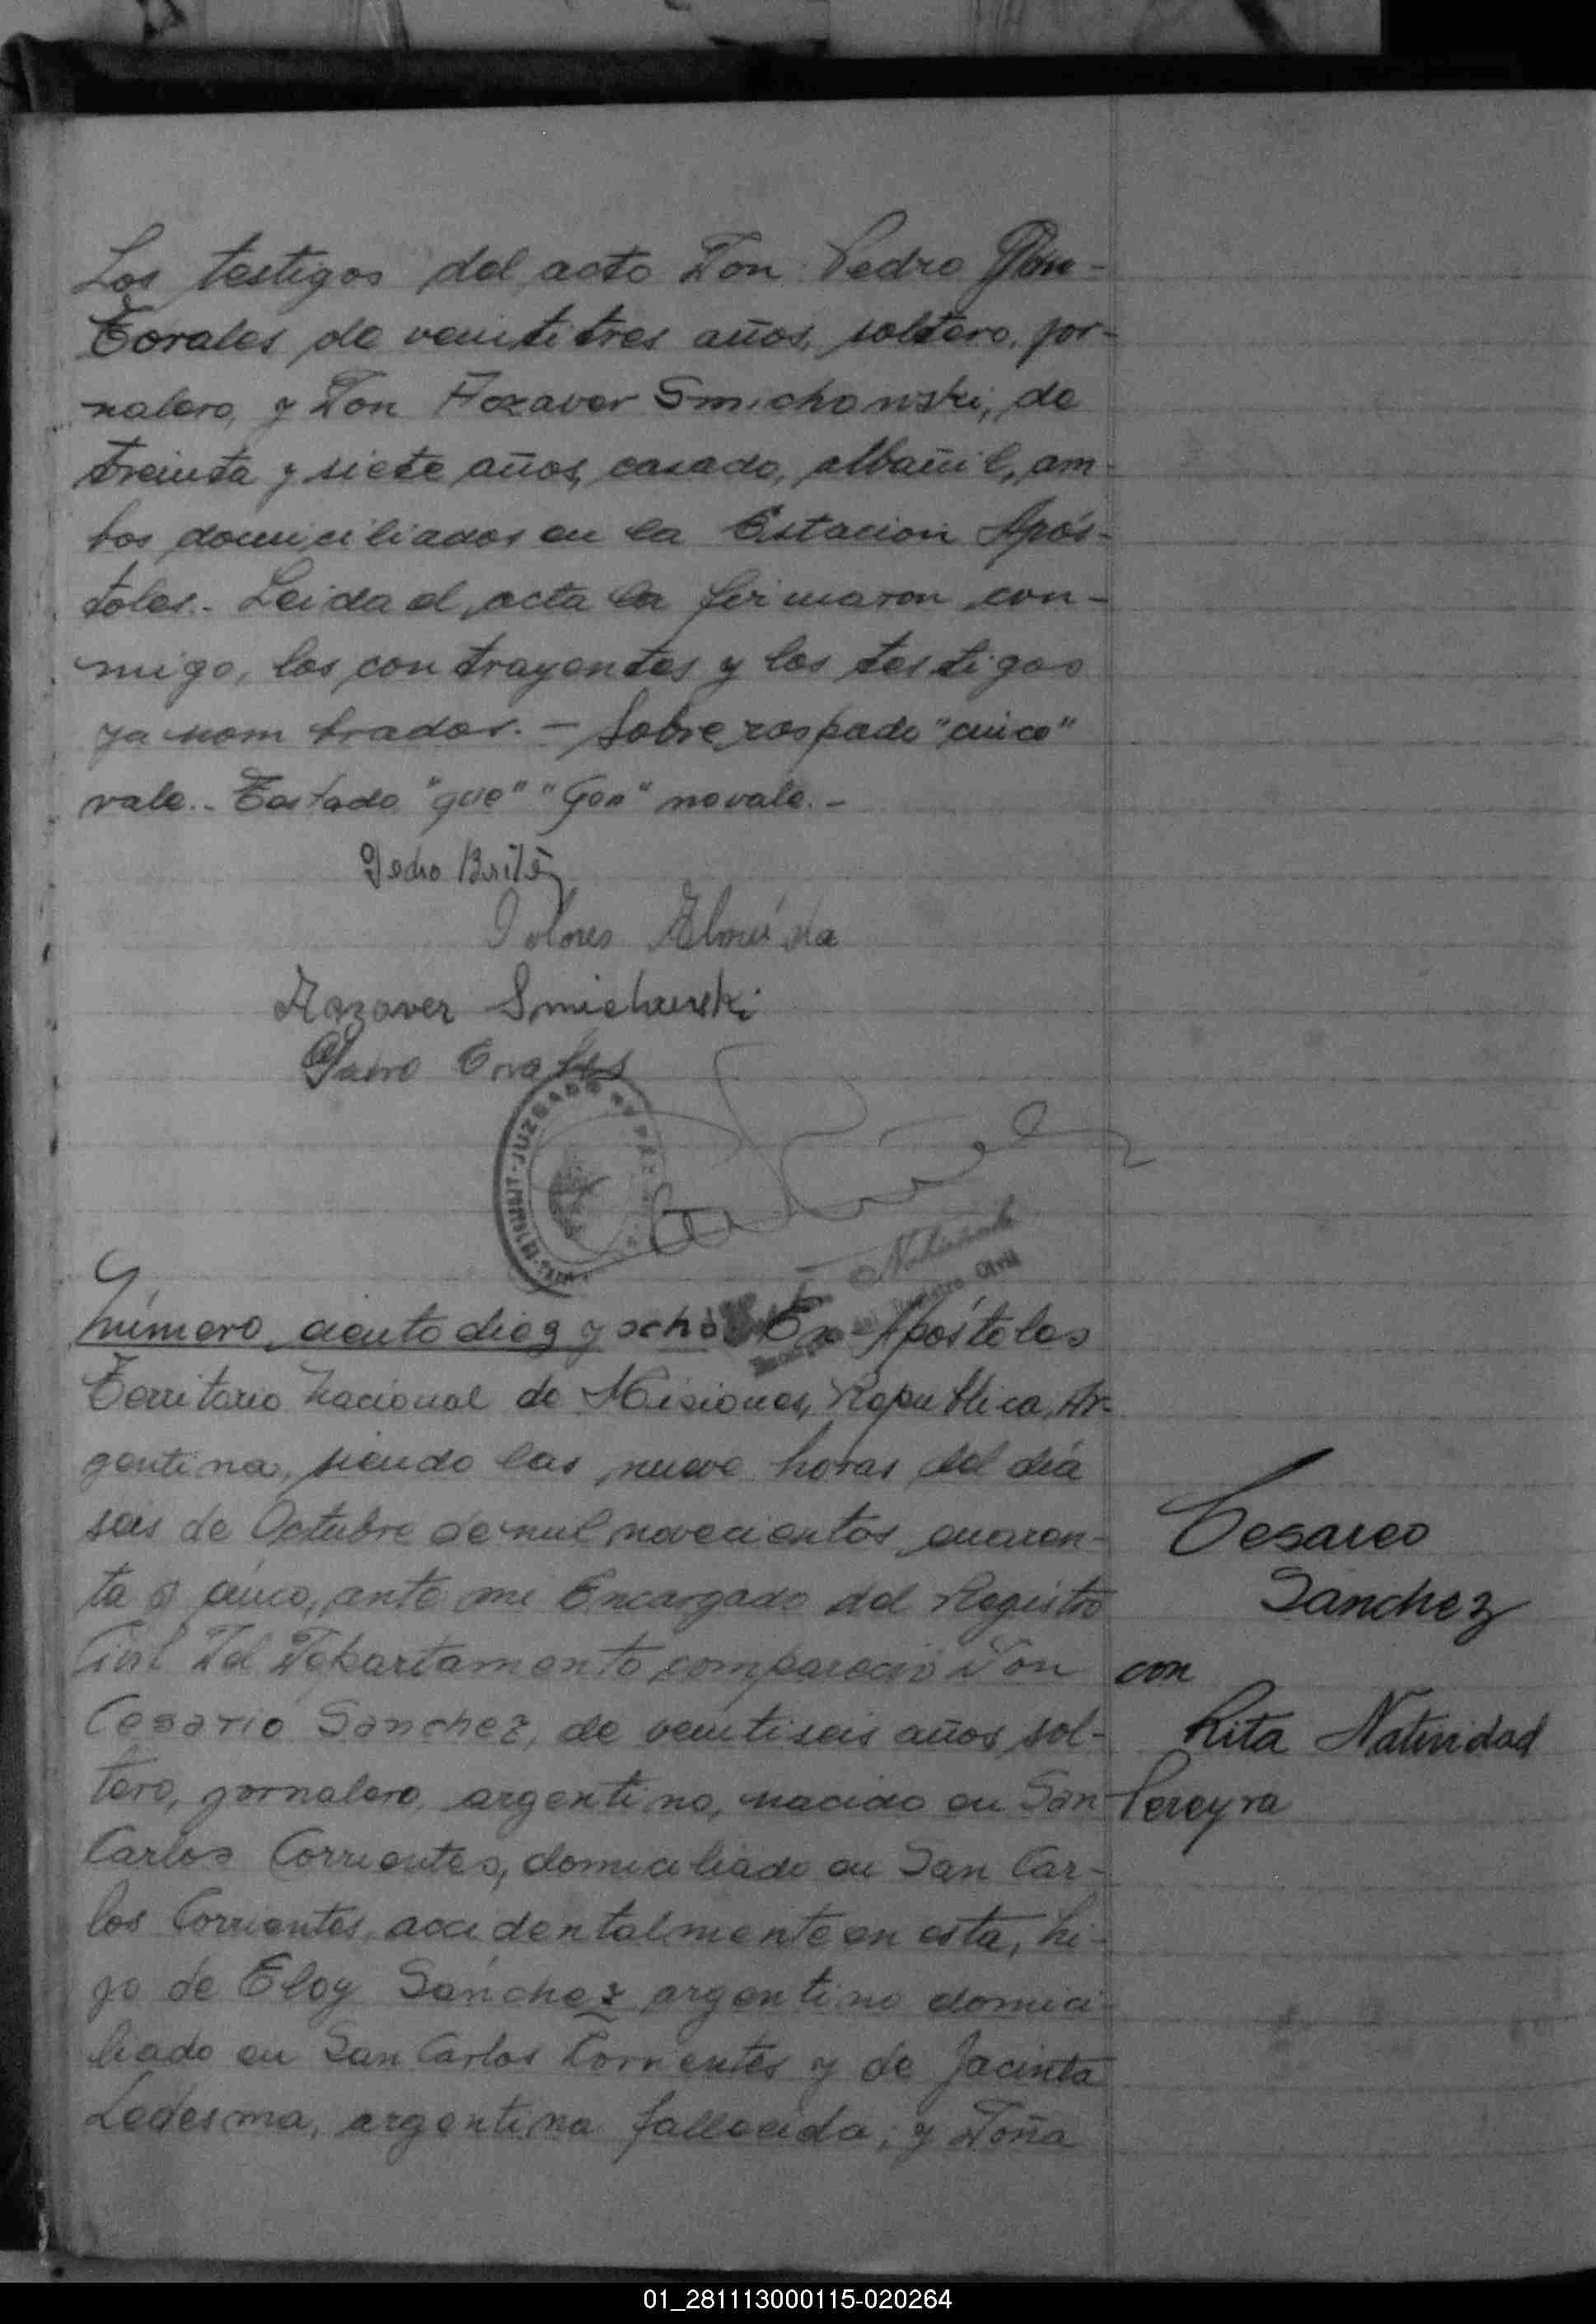 Los testigos del acto Don Pedro
Corales de veintitres años, soltero, jor-
nalero, y Don Acxaver Smichowski, de
treinta y siete años, casado, albañil, am-
bos domiciliados en la Estacion Após-
toles.- Leida el acta la firmaron con-
migo, los contrayentes y los testigos
ya nombrados.- Sobre raspado "cinco"
vale.- Testado "que" "Gon" no vale.-
Pedro Britez
Dolores
Smichowski
JUZGADO DE PAZ
Número ciento diez y ocho En Apóstoles
Territorio Nacional de Misiones, Republica Ar-
gentina, siendo las nueve horas del día
seis de Octubre de mil novecientos cuaren-
ta y cinco, ante mi Encargado del Registro
Civil Del Departamento compareció Don
Cesario Sanchez, de veintiseis años, sol-
tero, jornalero, argentino, nacido en San
Carlos Corrientes, domiciliado en San Car-
los Corrientes, accidentalmente en esta, hi-
jo de Eloy Sánchez argentino domici-
liado en San Carlos Corrientes y de Jacinta
Ledesma, argentina fallecida; y Doña
Cesareo
Sanchez
con
Rita Natividad
Pereyra
01_281113000115-020264